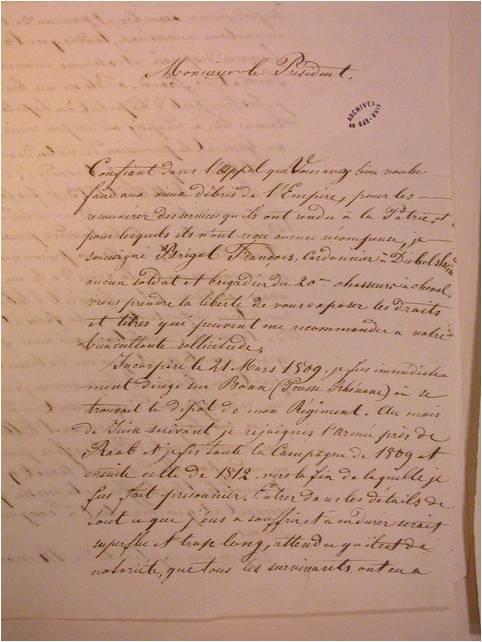 Monsieur le Président.
ARCHIVES
DU BAS-RHIN
Confiant dans l'appel que Vous avez bien voulu
faire aux vieux débris de l'Empire, pour les
remunérer des services qu'ils ont rendu à la Patrie, et
pour lesquels ils n'ont reçu aucune récompense, je
soussigné Brigel François, Cordonnier à
ancien soldat et brigadier du 20me chasseurs à cheval,
viens prendre la liberté de vous exposer les droits
et titres qui peuvent me recommander à votre
bienveillante sollicitude.
Incorporé le 21 Mars 1809, je fus immédiate
ment dirigé sur Bonn (Prusse Rhénane) où se
trouvait le dépôt de mon Régiment. Au mois
de Juin suivant je rejoignis l'armée près de
Raab et je fis toute la Campagne de 1809 et
ensuite celle de 1812, vers la fin de laquelle je
fus fait prisonnier. Entrer dans les détails de
tout ce que j'eus à souffrir et à endurer serait
superflu et trop long, attendu qu'il est de
notoriété, que tous les survivants ont eu à